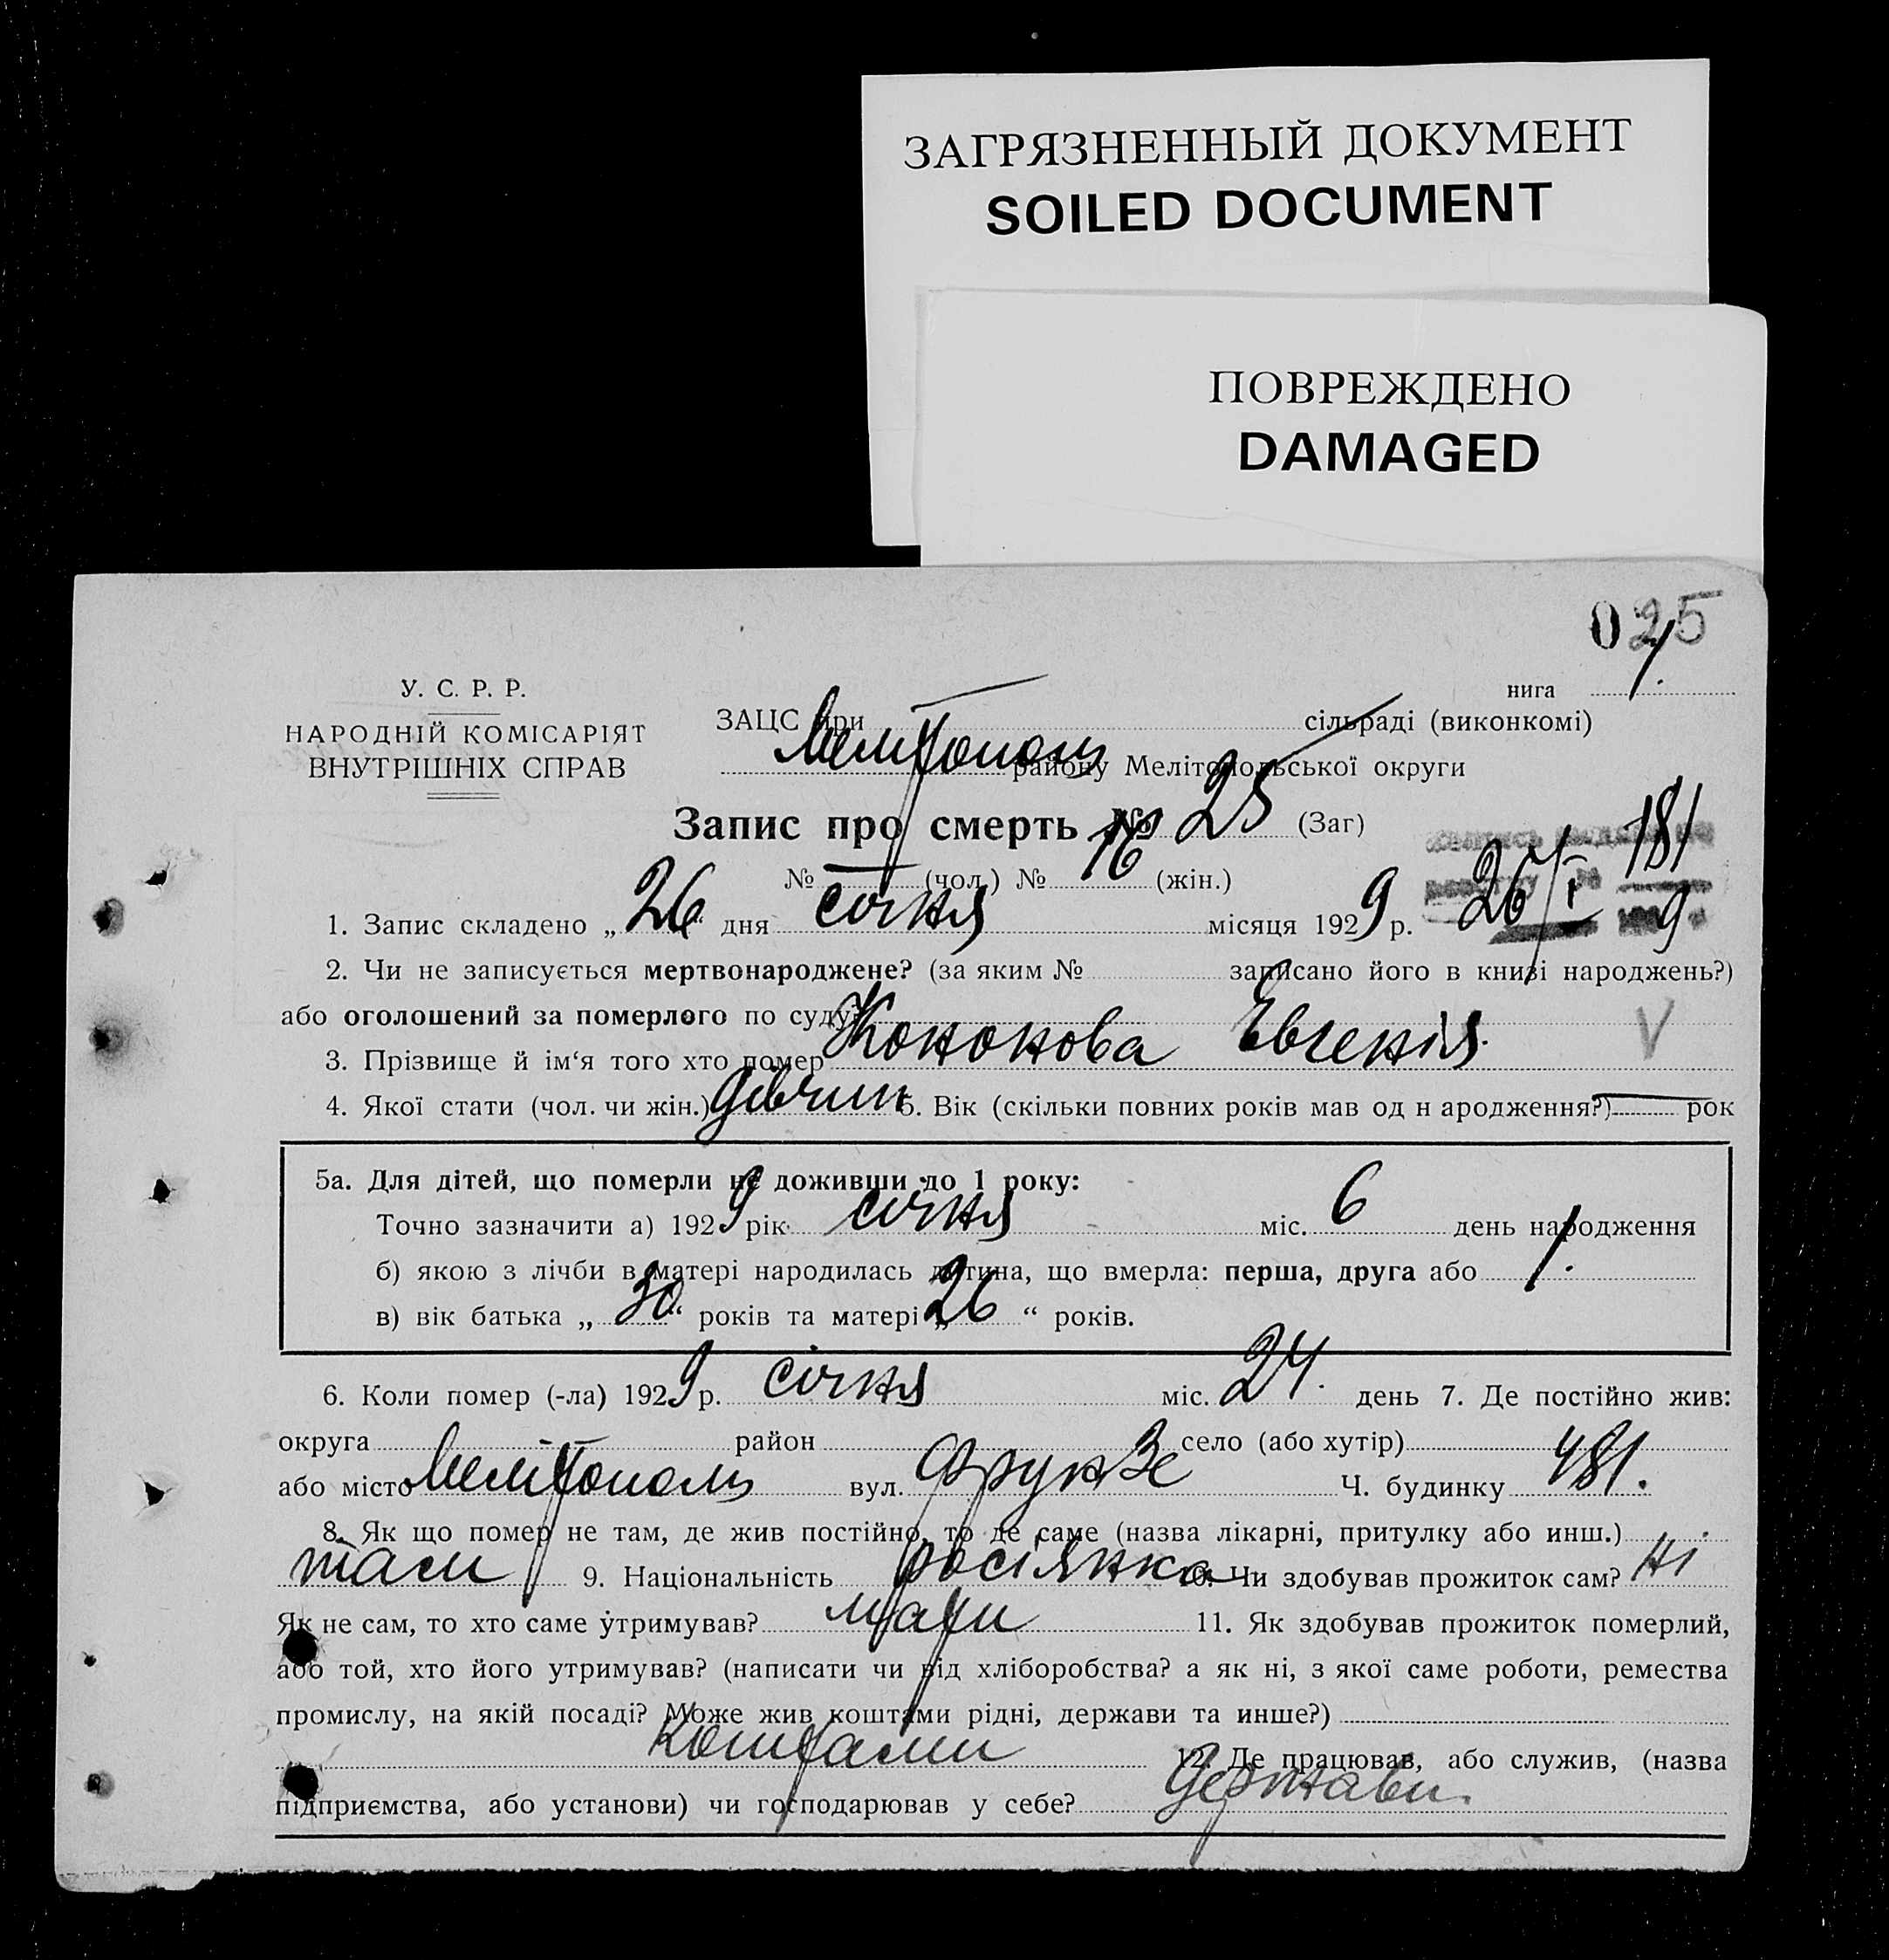 ЗАГРЯЗНЕННЫЙ ДОКУМЕНТ
SOILED DOCUMENT
ПОВРЕЖДЕНО
DAMAGED
025
У. С. Р. Р.
НАРОДНІЙ КОМІСАРІЯТ
ВНУТРІШНІХ СПРАВ
нига 1.
ЗАЦС при сільраді (виконкомі)
Мелітополь району Мелітопольської округи
Запис про смерть № 25 (Заг)
№ — (чол.) № 16 (жін.)
181
26/I 9
1. Запис складено „26“ дня січня місяця 1929 р.
2. Чи не записується мертвонароджене? (за яким № записано його в книзі народжень?)
або оголошений за померлого по суду?
3. Прізвище й ім‘я того хто помер Кононова Евгенія V
4. Якої стати (чол. чи жін.) дівчин 5. Вік (скільки повних років мав од н ародження?) — рок
5а. Для дітей, що померли не доживши до 1 року:
Точно зазначити а) 1929 рік січня міс. 6 день народження
б) якою з лічби в матері народилась дитина, що вмерла: перша, друга або 1.
в) вік батька „30“ років та матері „26“ років.
6. Коли помер (-ла) 1929 р. січня міс. 24. день 7. Де постійно жив:
округа район село (або хутір)
або місто Мелітополь вул. Фрунзе Ч. будинку 481.
8. Як що помер не там, де жив постійно, то де саме (назва лікарні, притулку або инш.)
там 9. Національність росіянка 10. Чи здобував прожиток сам? ні
Як не сам, то хто саме утримував? мати 11. Як здобував прожиток померлий,
або той, хто його утримував? (написати чи від хліборобства? а як ні, з якої саме роботи, ремества
промислу, на якій посаді? Може жив коштами рідні, держави та инше?)
коштами 12. Де працював, або служив, (назва
підприємства, або установи) чи господарював у себе? держави.